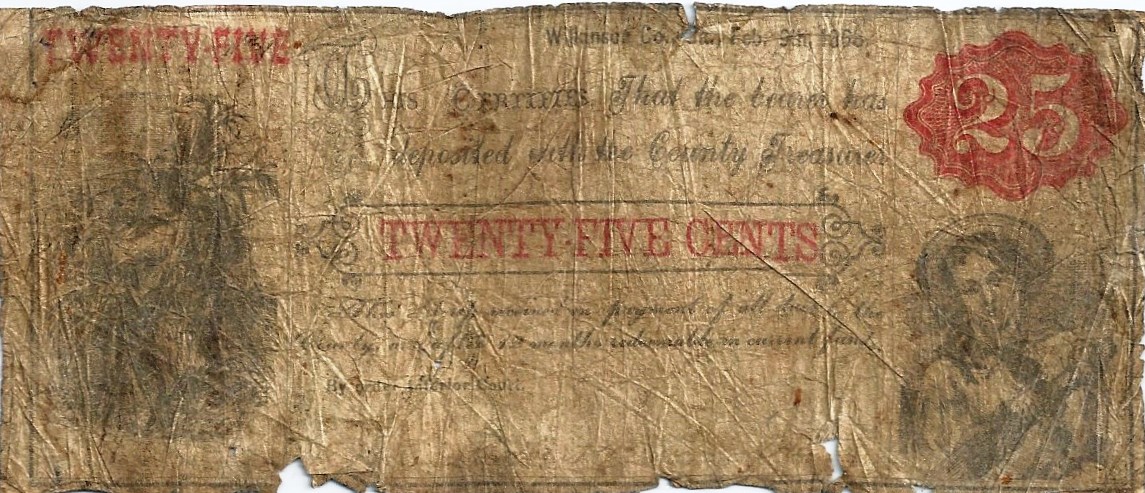 TWENTY-FIVE
Wilkinson Co., Feb. 9th, 1866.
25
THIS CERTIFIES That the bearer has
deposited with the County Treasurer
TWENTY-FIVE CENTS
This received in payment of all the
County, and after 12 months redeemable in current funds
By order Inferior Court.